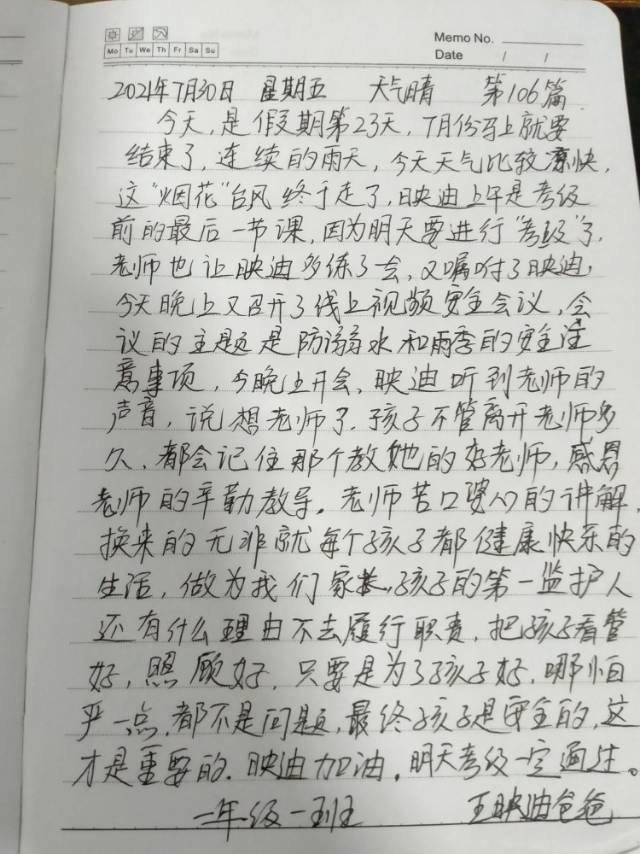 Memo No.
Mo Tu We Th Fr Sa Su
Date / /
2021年7月30日 星期五 天气晴 第106篇
今天,是假期第23天,7月份马上就要
结束了,连续的雨天,今天天气比较凉快,
这"烟花"台风终于走了,映迪上午是考级
前的最后一节课,因为明天要进行"考级"了,
老师也让映迪多练了会,又嘱咐了映迪,
今天晚上又召开了线上视频安全会议,会
议的主题是防溺水和雨季的安全注
意事项,今晚上开会,映迪听到老师的
声音,说想老师了.孩子不管离开老师多
久、都会记住那个教她的好老师,感恩
老师的辛勤教导。老师苦口婆心的讲解,
换来的无非就每个孩子都健康快乐的
生活,做为我们家长,孩子的第一监护人
还有什么理由不去履行职责,把孩子看管
好,照顾好,只要是为了孩子好,哪怕
严一点,都不是问题,最终孩子是安全的,这
才是重要的.映迪加油,明天考级一定通过。
一年级一班 王映迪爸爸